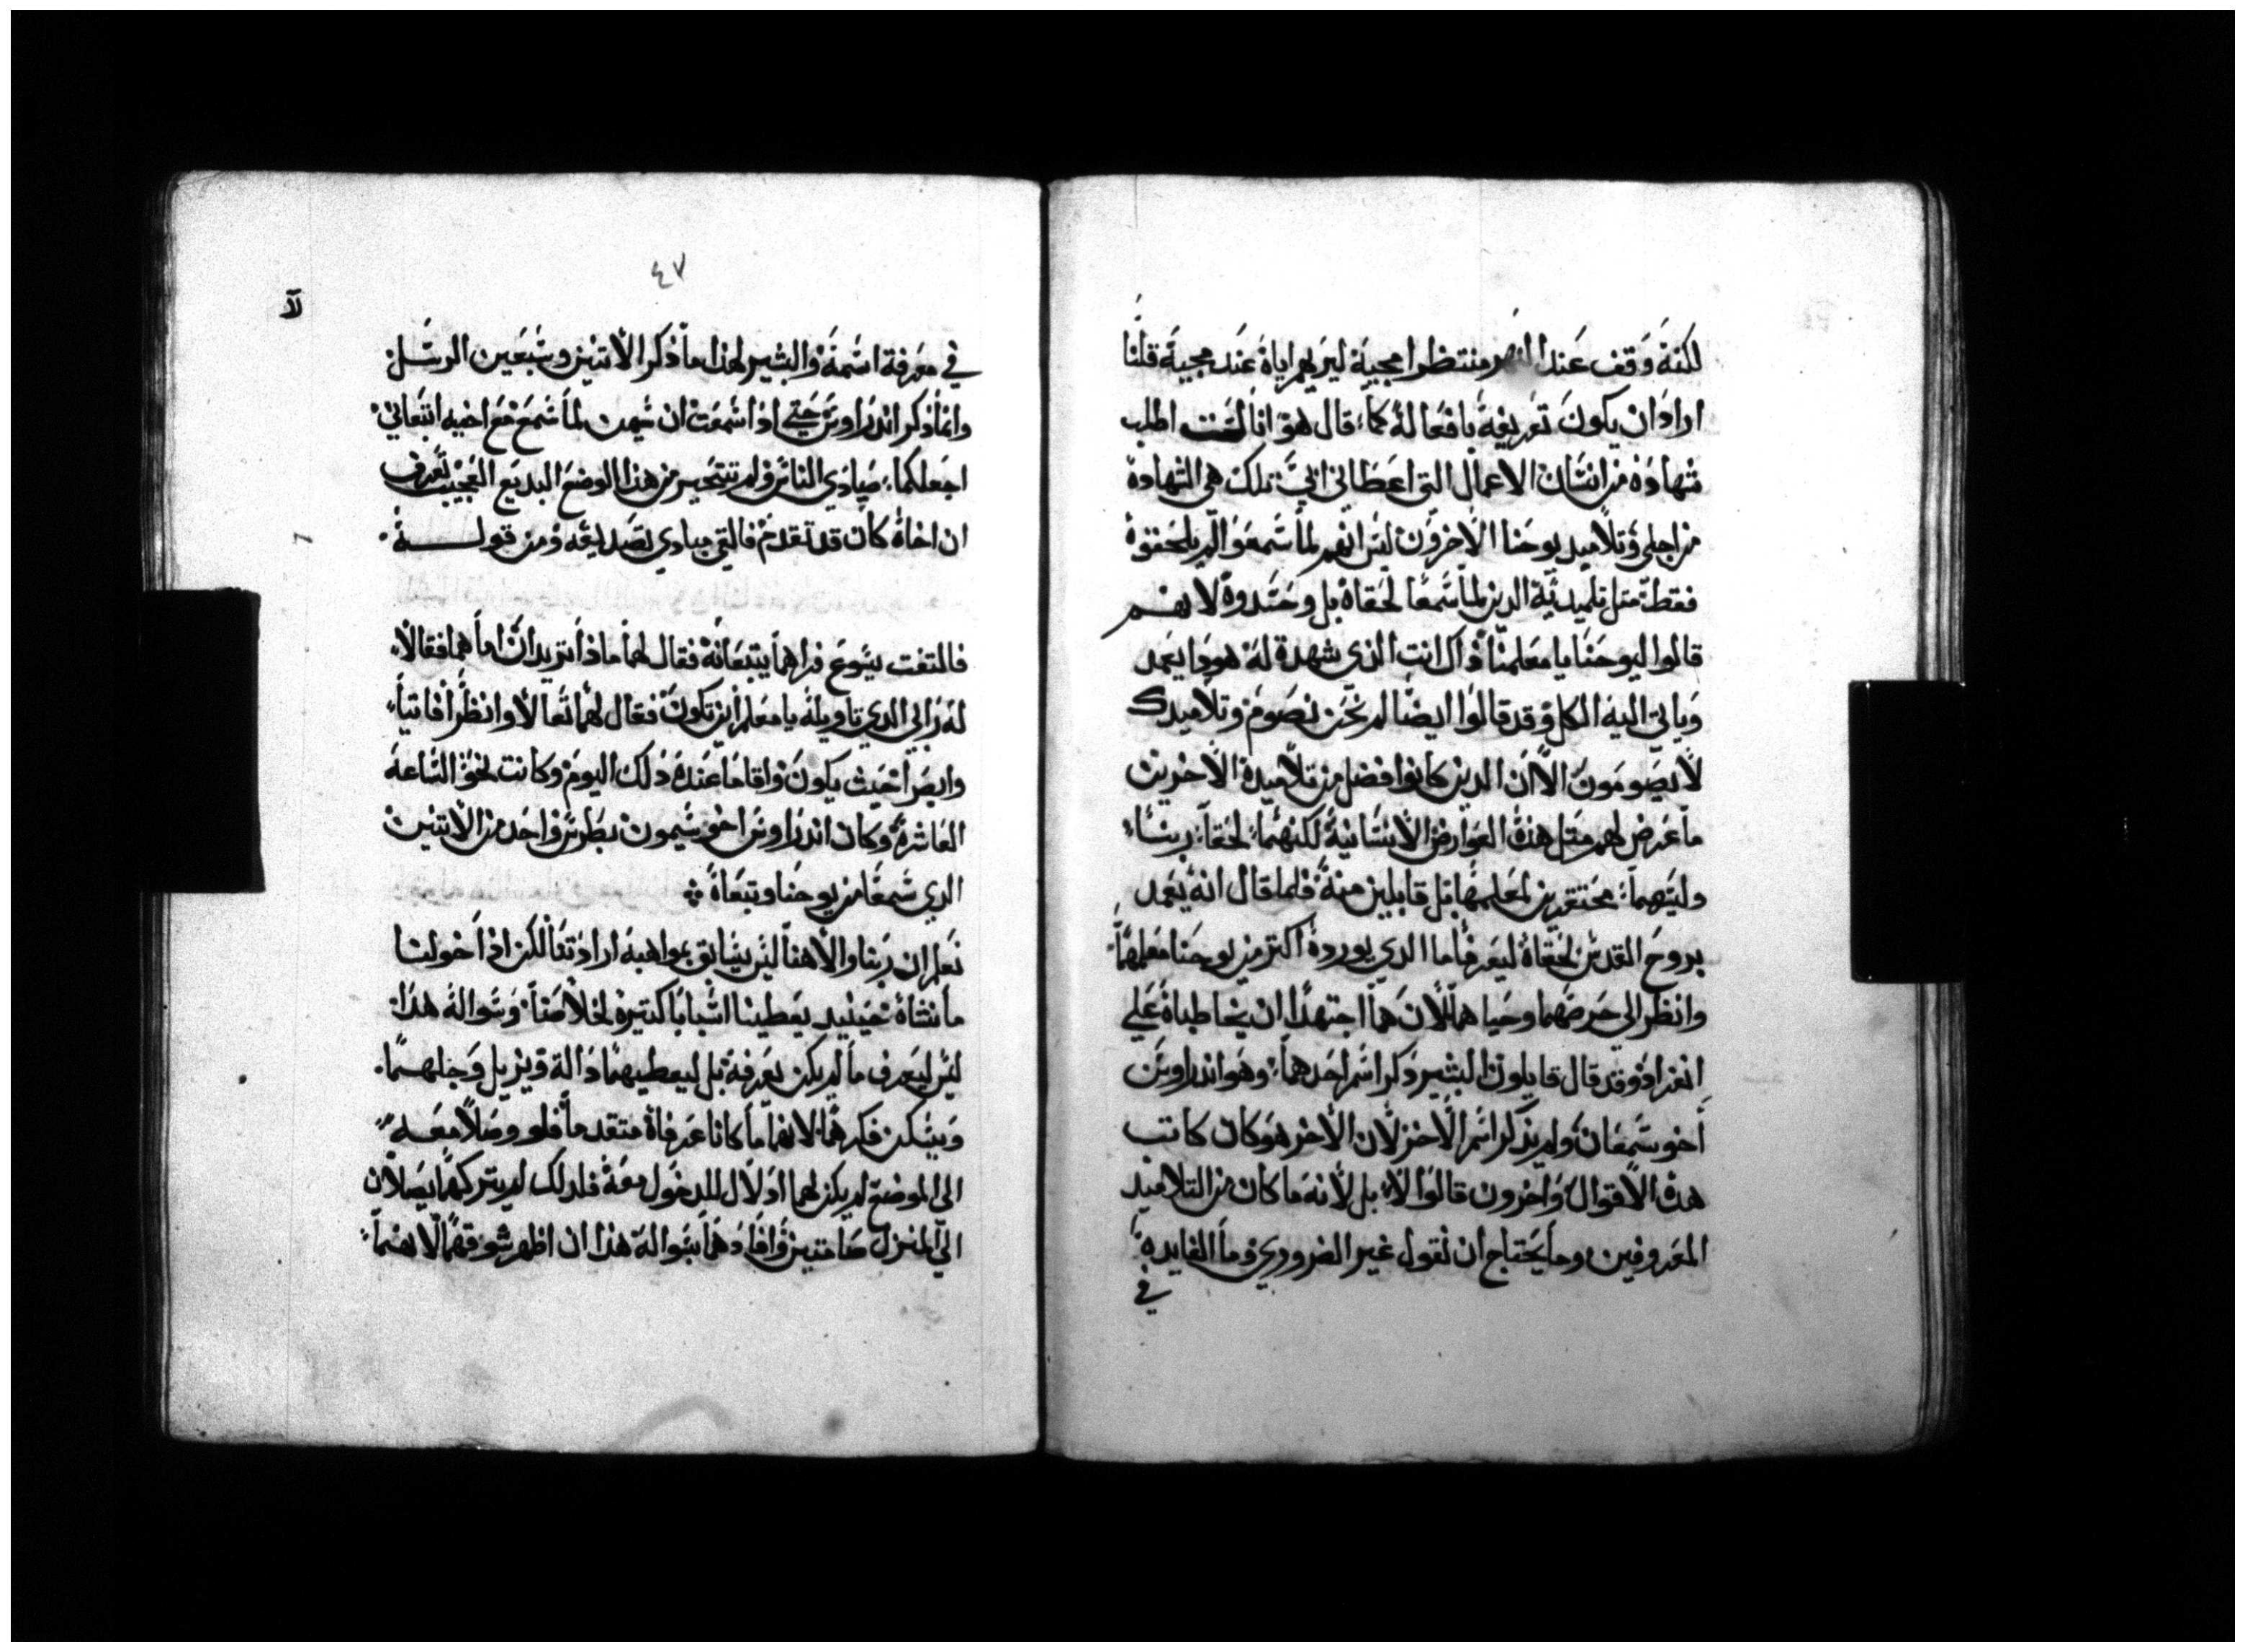 لكنة وقف عند النهر منتظرا مجية ليريهم اياة عند مجية قلنا
اراد ان يكون تعريفة بافعالة كما قال هو انا لست اطلب
شهادة من انسان الاعمال التى اعطانى ابى تلك هى الشهادة
من اجلى وتلاميد يوحنا الاخرون ليس انهم لما سمعوا لم يلحقوة
فقط مثل تلميدية الدين لما سمعا لحقاة بل وحسدوة لانهم
قالوا ليوحنا يا معلمنا ذاك انت الذى شهدة لة هودا يعمد
وياتى الية الكل وقد قالوا ايضا لم نحن نصوم وتلاميدك
لا يصومون الا ان الدين كانوا افضل من تلاميدة الاخرين
ما عرض لهم مثل هدة العوارض الانسانية لكنهما لحقا ربنا
وليسهما محتقرين لمعلمهما بل قابلين منة فلما قال انة يعمد
بروح القدس لحقاة ليعرفا ما الدى يوردة اكتر من يوحنا معلمهما
وانظر الى حرصهما وحياهما لان هما اجتهدا ان يخاطباة على
انفراد وقد قال قايلون البشير ذكر اسم احدهما وهو اندراوس
اخو سمعان ولم يذكر اسم الاخر لان الاخر هو كان كاتب
هدة الاقوال واخرون قالوا لا بل لانة ما كان من التلاميد
المعروفين وما يحتاج ان نقول غير الضرورى وما الفايدة
في
٤٧
في معرفة اسمة والبشير لهذا ما ذكر الاتنين وسبعين الرسل
وانما ذكر اندراوس حتى اذا سمعت ان سيمن لما سمع مع اخيه اتبعانى
اجعلكما صيادي الناس ولم تتحير من هذا الوضع البديع العجيب تعرف
ان اخاة كان قد تقدم فالتى مبادي تصديقه ومن قولة
فالتفت يسوع فراهما يتبعانة فقال لهما ماذا تريدان اما هما فقالا
لة رابي الدي تاويلة يا معلم اين تكون فقال لهما تعالا وانظرا فاتيا
وابصرا حيث يكون واقاما عندة ذلك اليوم وكانت نحو الساعة
العاشرة وكان اندراوس اخو سيمون بطرس واحد من الاتنين
الدي سمعا من يوحنا وتبعاة
نعلم ان ربنا والاهنا ليس يسابق بمواهبة ارادتنا لكن اذا خولنا
ما نشاة حينيد يعطينا اسبابا كتيرة لخلاصنا وسوالة هذا
ليس ليعرف ما لم يكن يعرفة بل ليعطيهما دالة ويزيل وجلهما
ويسكن فكرهما لانهما ما كانا عرفاة متقدما فلو وصلا معه
الى الموضع لم يكن لهما ادلال للدخول معة فلدلك لم يتركهما يصلان
الى المنزل صامتين وافادهما بسوالة هذا ان اظهر شوقهما لانهما